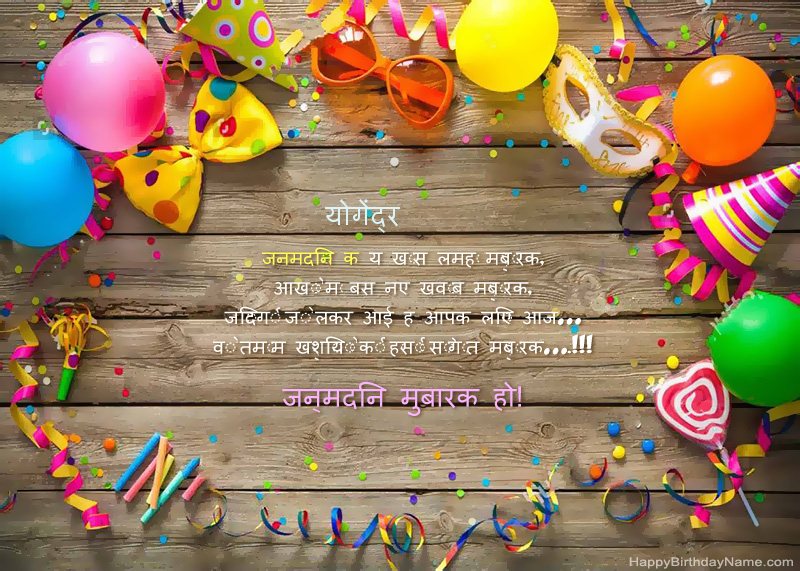 योगेंद्र
जनमदनि क य खास लमहा मुबारक,
आखों में बस नए खवाब मुबारक,
जदिगी जो लेकर आई ह आपक लएि आज...
वो तमाम खुशियों की हसीं सौगात मुबारक...!!!
जन्मदनि मुबारक हो!
HappyBirthdayName.com